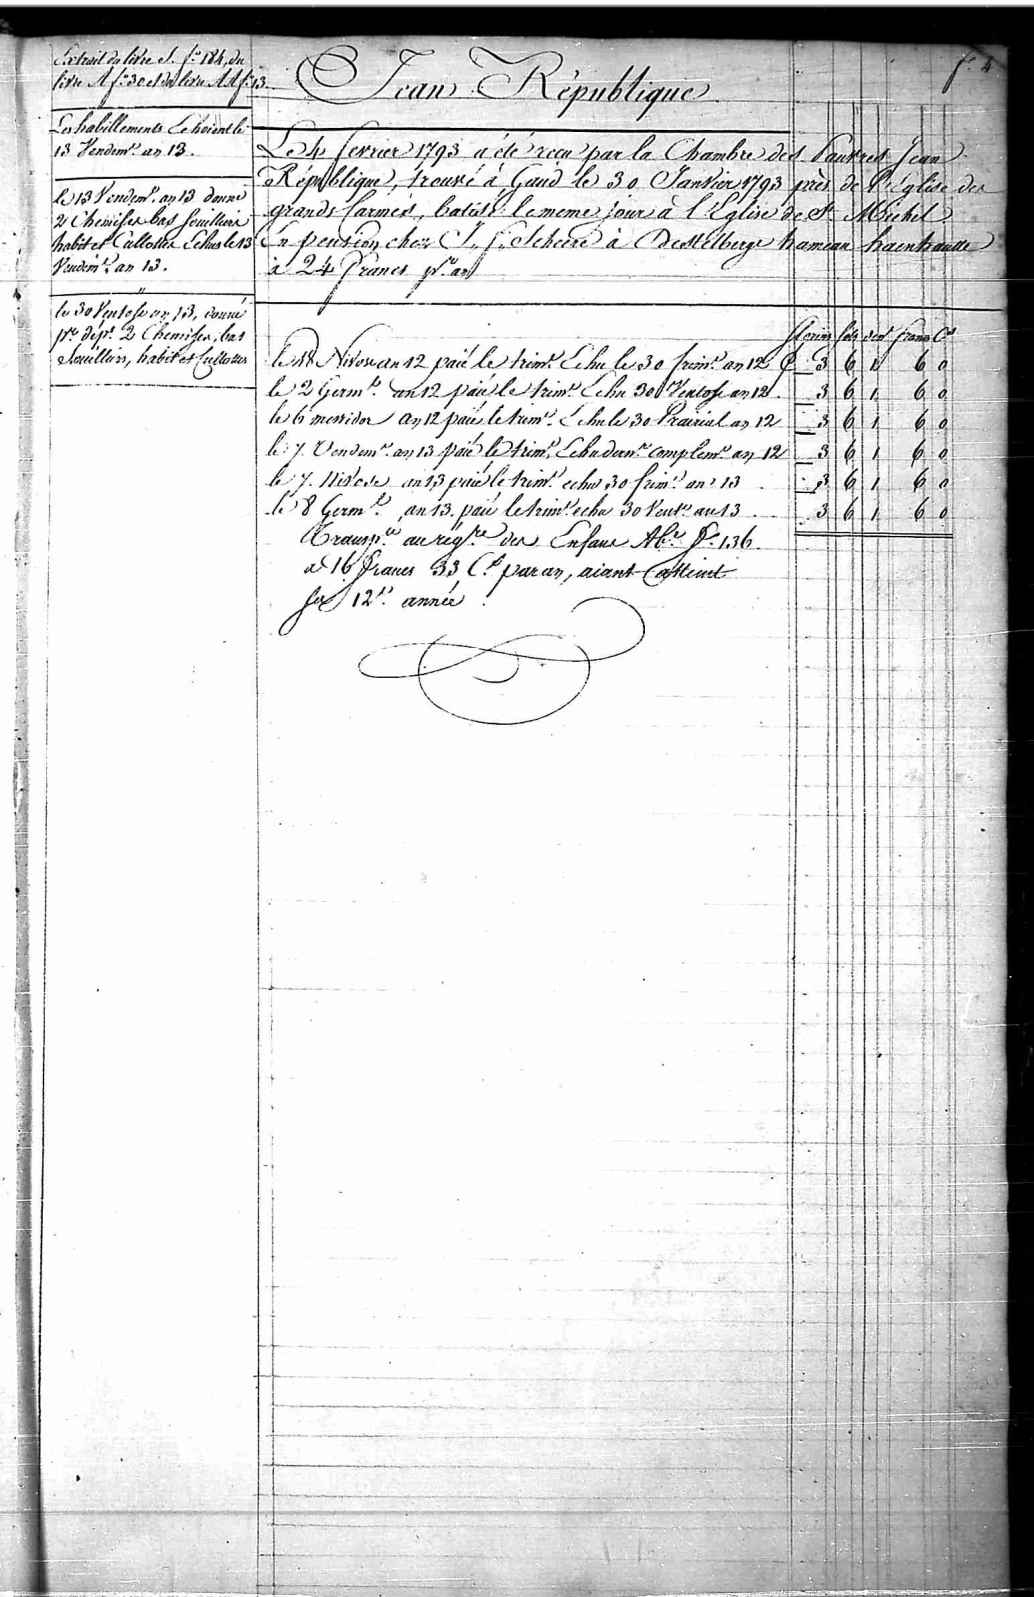 fo. 4
Extrait du livre S. fo. 184, du
livre A fo. 30 et du livre AA fo. 13
Les habillements Echoient le
13 Vendemre. an 13.
le 13 Vendemre. an 13 donné
2 Chemises bas souilliers
habit et Cullottes Echus le 13
Vendemre. an 13.
le 30 Ventose an 13, donné
2 Chemises, bas
Souilliers, habit et Cullottes
Jean République
Le 4 fevrier 1793 a été recu par la Chambre des Pauvres Jean
République, trouvé à Gand le 30 Janvier 1793 près de l'église des
grands Carmes, batisé le meme jour à l'Eglise de St. Michel
En pension chez J. f. Scheire à Destelberge hameau haenhoutte
à 24 francs pr. an
florins sols den. francs Cs
le 18 Nivose an 12 paié le trimre. Echu le 30 frimre. an 12 3 6 1 6 0
le 2 Germl. an 12 paié le trimre. Echu 30 Ventose an 12 3 6 1 6 0
le 6 messidor an 12 paié le trimre. Echu le 30 Prairial an 12 3 6 1 6 0
le 7. Vendemre. an 13 paié le trimre. Echu dern. complemre. an 12 3 6 1 6 0
le 7. Nivose an 13 paié le trimre. echu 30 frimre. an 13 3 6 1 6 0
le 8 Germl. an 13. paié le trimre. echu 30 Ventse. an 13 3 6 1 6 0
Transpté. au régtre. des Enfans Abs. fo. 136
à 16 francs 33 Cs. par an, aiant atteint
sa 12e. année.